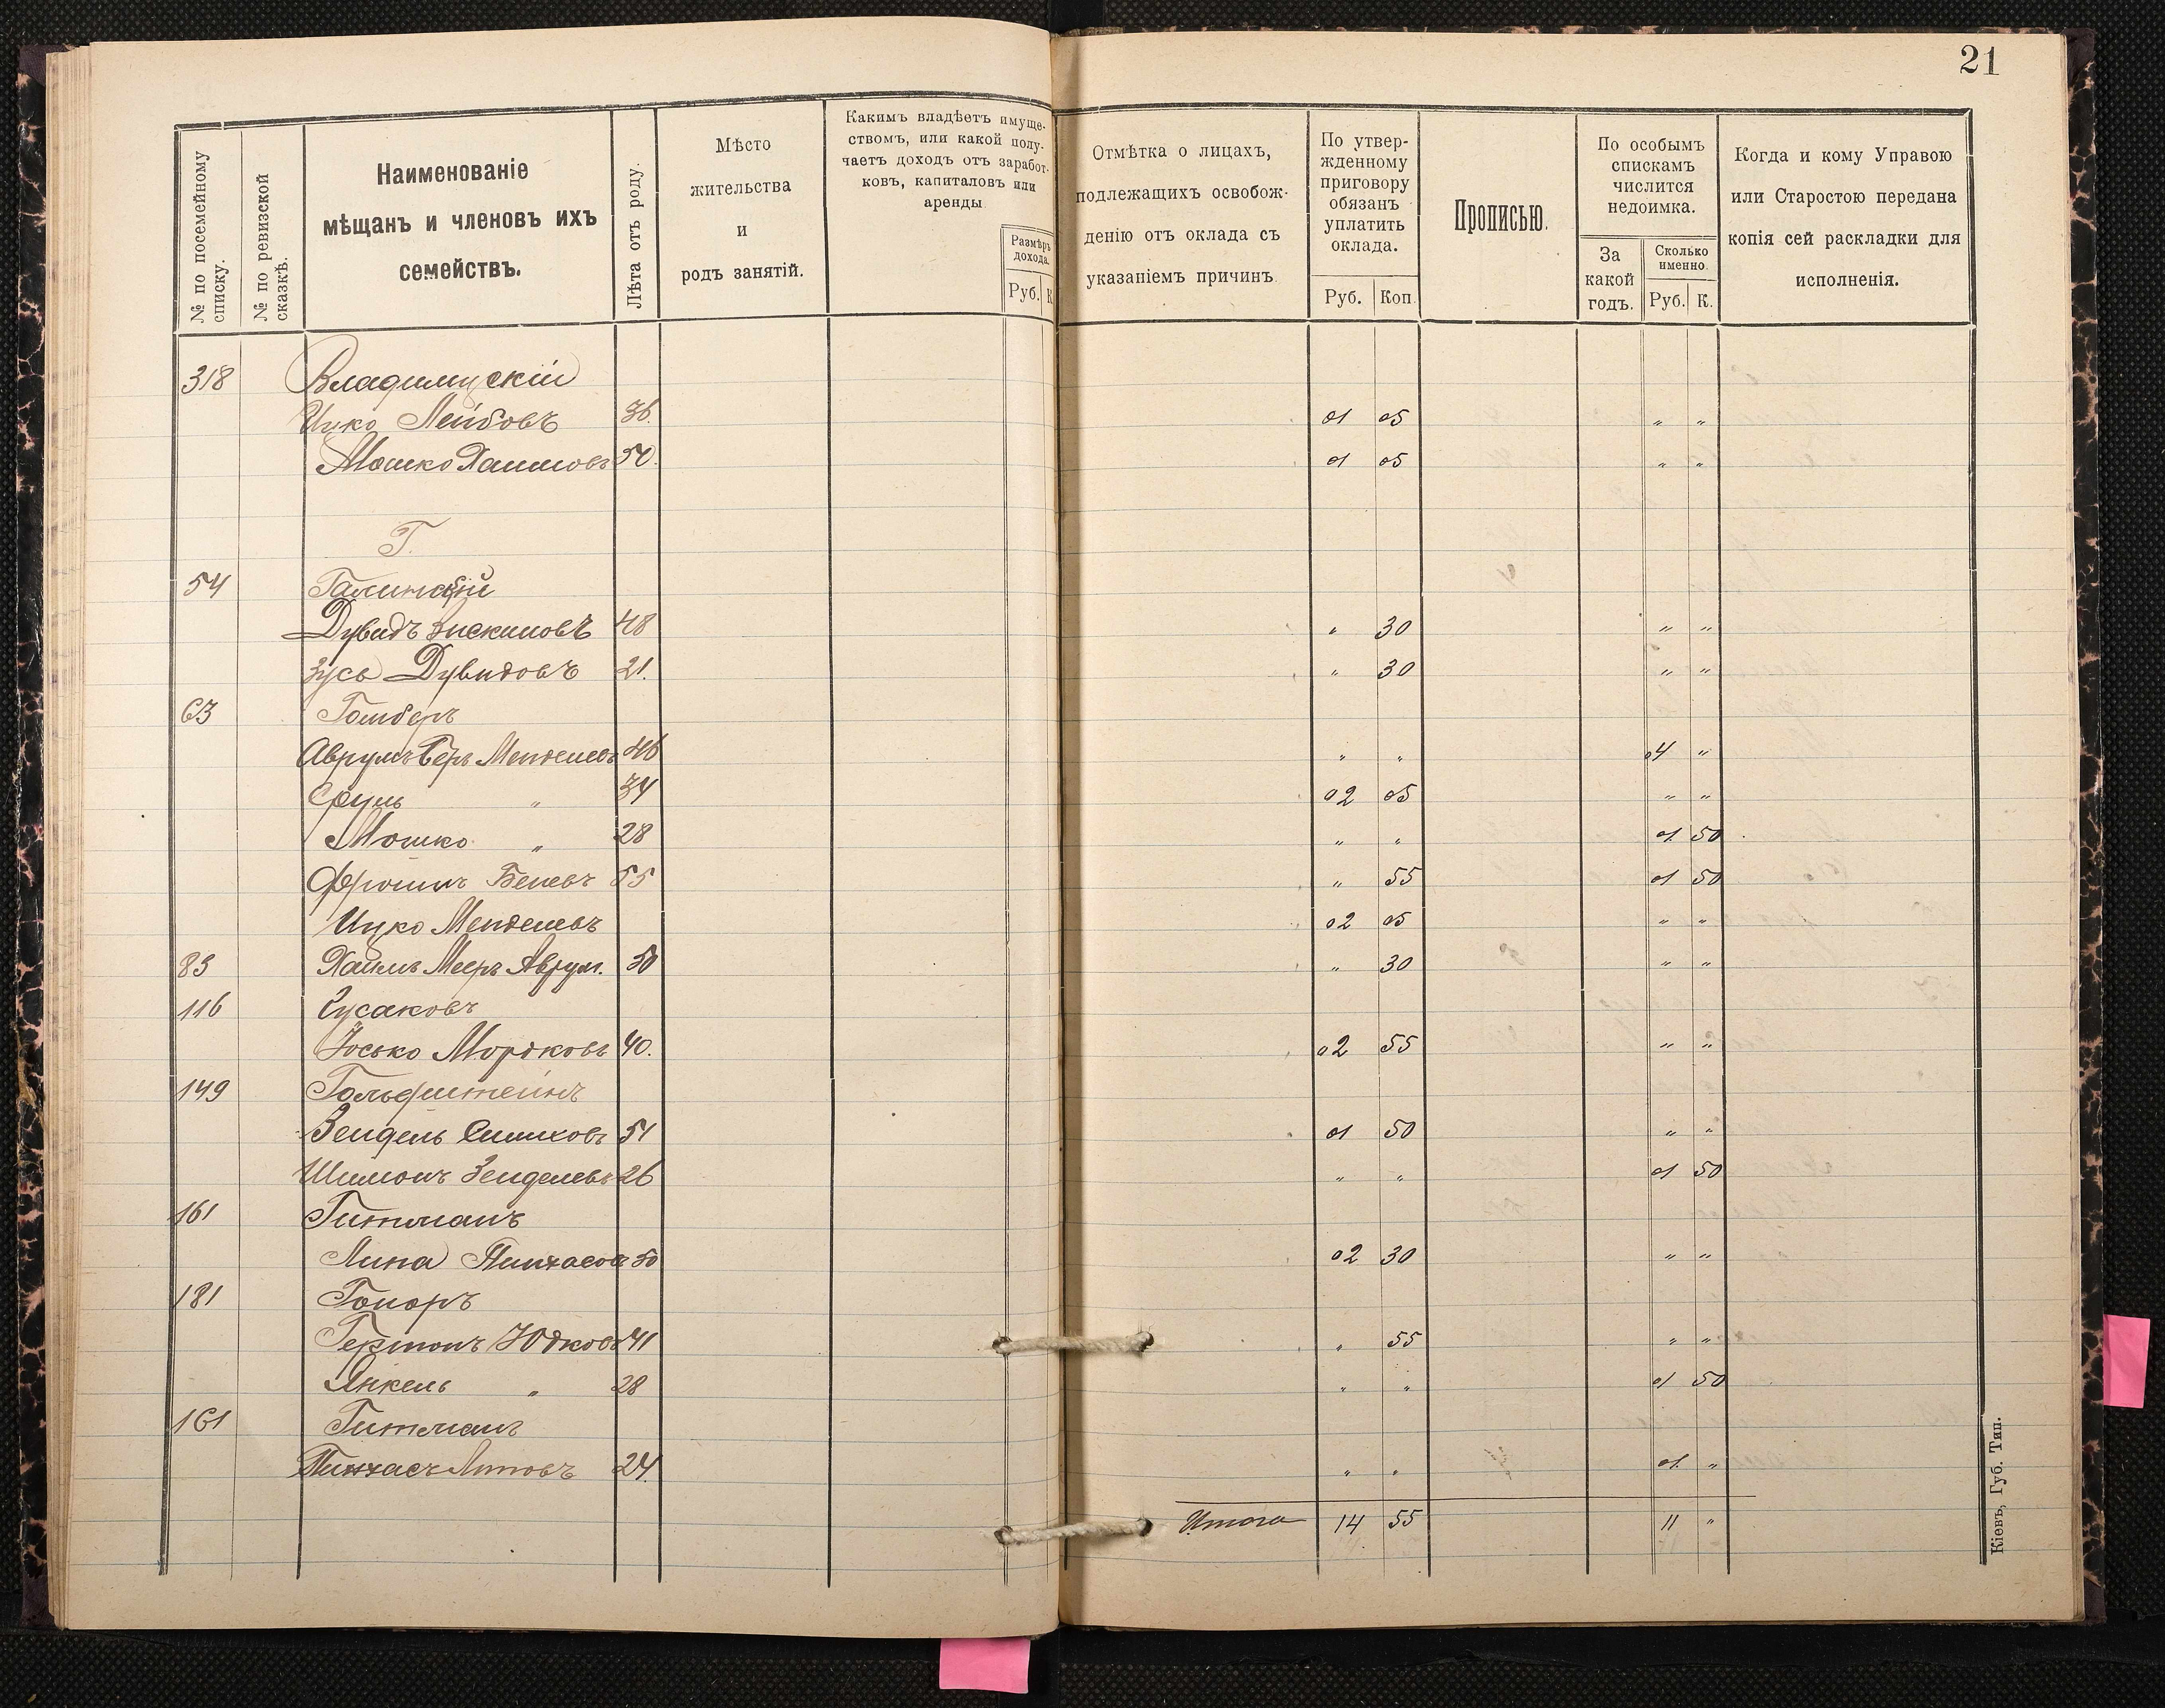 21
№ по посемейному списку.
№ по ревизской сказкѣ.
Наименованіе
мѣщанъ и членовъ ихъ
семействъ.
Лѣта отъ роду.
Мѣсто
жительства
и
родъ занятій.
Какимъ владѣетъ имуще-
ствомъ, или какой полу-
чаетъ доходъ отъ заработ-
ковъ, капиталовъ или
аренды
Размѣръ
дохода.
Руб. К
Отмѣтка о лицахъ,
подлежащихъ освобож-
денію отъ оклада съ
указаніемъ причинъ
По утвер-
жденному
приговору
обязанъ
уплатить
оклада.
Руб. Коп.
Прописью.
По особымъ
спискамъ
числится
недоимка.
За
какой
годъ.
Сколько
именно.
Руб. К.
Когда и кому Управою
или Старостою передана
копія сей раскладки для
исполненія.
318
Ицко Лейбовъ 36. 01 05 " "
Мошко Хаимовъ 50. 01 05 " "
Г.
54
Дувидъ 48 " 30 " "
Зусь Дувидовъ 21. " 30 " "
63
Аврумъ Беръ Менделевъ 46 " " 04 "
Сруль " 34 02 05 " "
Мошко " 28 " " 01 50
Беневъ 55 " 55 01 50
Ицко Менделевъ 02 05 " "
83 Хаимъ Мееръ Аврум. 50 " 30 " "
116 Гусаковъ
Іосько Мордковъ 40. 02 55 " "
149 Гольдштейнъ
Зейдель 51 01 50 " "
Шимонъ Зейделевъ 26 " " 01 50
161 Гитманъ
Пинхасов 50 02 30 " "
181 Гоноръ
Гершонъ Юдковъ 41 " 55 " "
Янкель " 28 " " 01 50
161 Гитманъ
Пинхасъ 24. " " 01. "
Итого 14 55 11 "
Кіевъ, Губ. Тип.